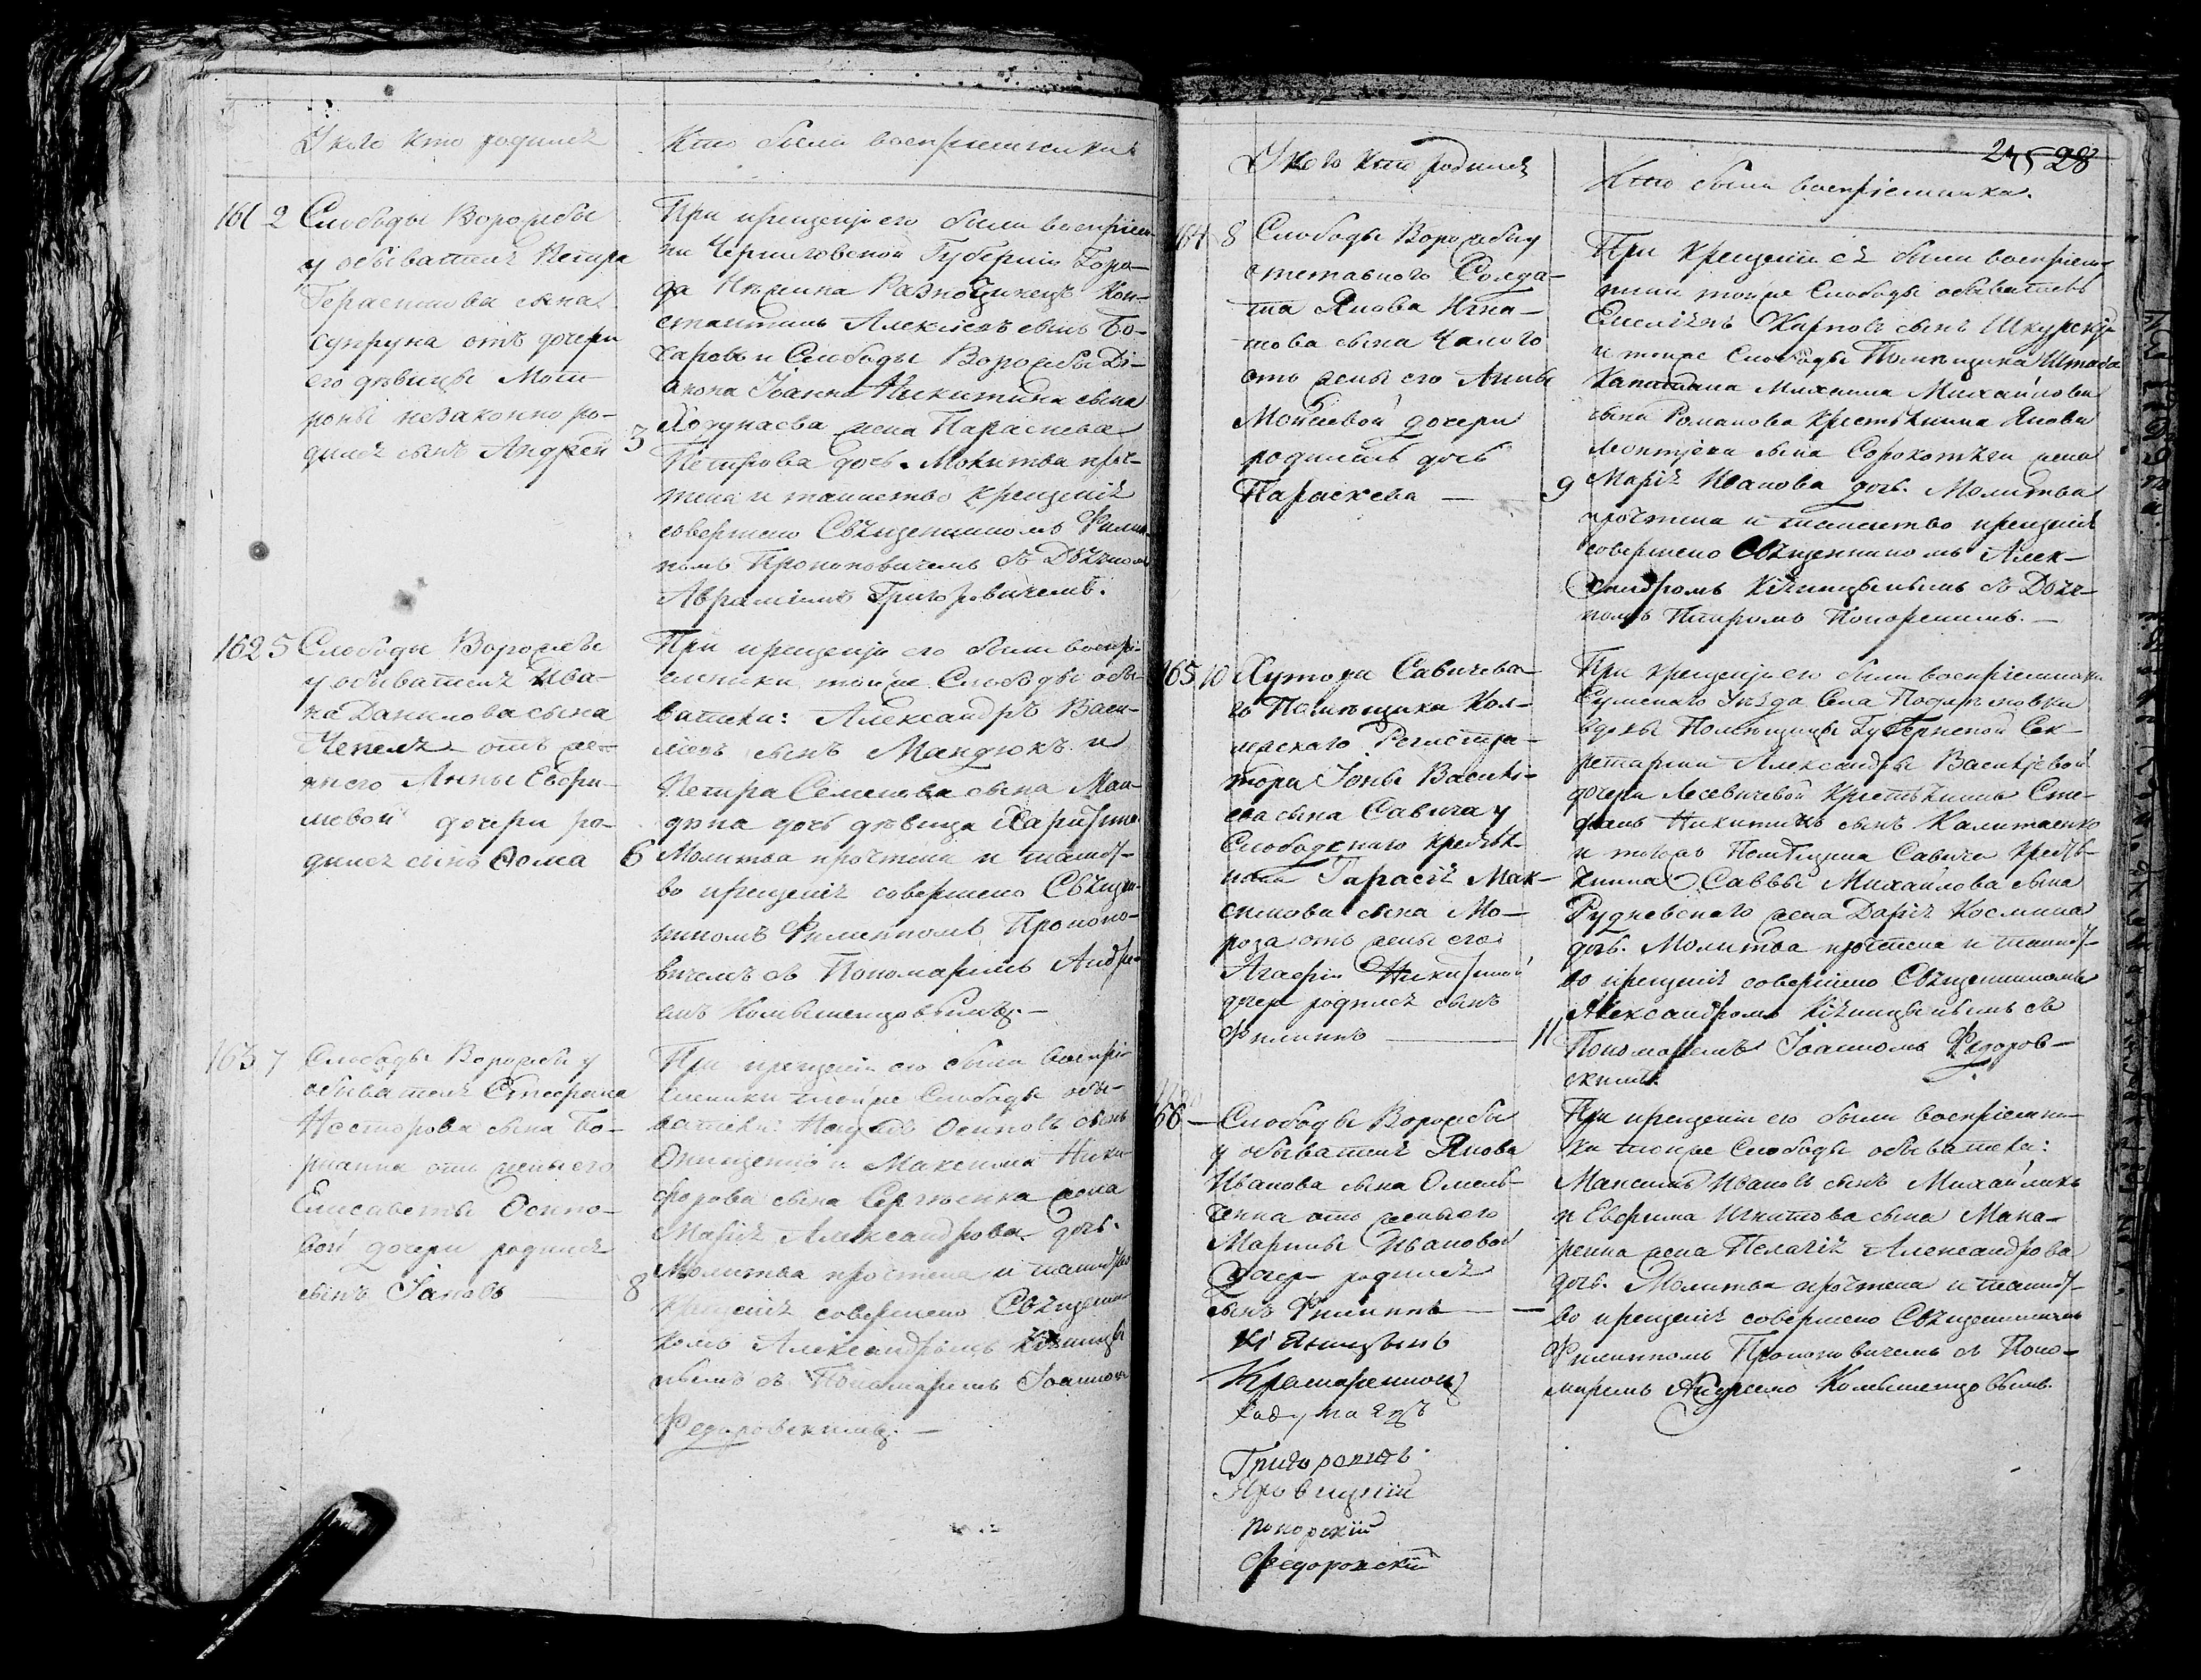 У кого кто родился
Кто были восприемники
161 2 Слободы Ворожбы
у обывателя Петра
Герасимова сына
Супруна отъ дочери
его дѣвицы Мот-
роны незаконно ро-
дился сынъ Андрей 3
При крещеніи его были восприем-
ни Черниговской Губерніи Горо-
да Нѣжина Разночинецъ Кон-
стантинъ Алексѣевъ сынъ Бо-
харовъ и Слободы Ворожбы Ді-
акона Іоанна Никитина сына
жена Параскева
Петрова дочь. Молитва проч-
тена и таинство крещенія
совершено Священникомъ Филип-
помъ Прокоповичемъ съ Дьячкомъ
Авраміемъ Григоровичемъ.
162 5 Слободы Ворожбы
у обывателя Ива-
на Данилова сына
Чепеля отъ же-
ны его Анны Евфи-
мовой дочери ро-
дился сынъ Ѳома 6
При крещеніи его были воспрі-
емники тойже Слободы обы-
ватели: Александръ Васи-
льевъ сынъ Мандюкъ и
Петра Семенова сына Ман-
дюка дочь дѣвица Харитина
Молитва прочтена и таинст-
во крещенія совершено Священ-
никомъ Филиппомъ Прокопо-
вичемъ съ Пономаремъ Андре-
емъ
163 7 Слободы Ворожбы у
обывателя Стефана
Нестерова сына Бо-
отъ жены его
Елисаветы Осипо-
вой дочери родился
сынъ Іаковъ 8
При крещеніи его были воспрі-
емники тойже Слободы обы-
ватели: Осиповъ сынъ
Онищенко и Максима Ники-
форова сына Сергѣенка жена
Марія Александрова дочь.
Молитва прочтена и таинство
крещенія совершено Священни-
комъ Александромъ Кіяницы-
нымъ съ Пономаремъ Іоанномъ
Федоровскимъ.
28
У кого кто родился
Кто были восприемники.
164 8 Слободы Ворожбы у
отставного Солда-
та Якова Игна-
това сына Чалого
отъ жены его Анны
Мойсеевой дочери
родилась дочь
Параскева — 9
При крещеніи ея были восприем-
ники тойже Слободы обыватель
Емеліянъ Карповъ сынъ Шкуренко
и тойже Слободы Помѣщика Штабсъ
Капитана Михаила Михайлова
сына Романова крестьянина Якова
Леонтіева сына Сорокотяги жена
Марія Иванова дочь. Молитва
прочтена и таинство крещенія
совершено Священникомъ Алек-
сандромъ Кіяницынымъ съ Дьяч-
комъ Петромъ Попорскимъ. —
165 10 Хутора Савичева-
го Помѣщика Кол-
лежскаго Регистра-
тора Іоны Василі-
ева сына Савича у
крестья-
нина Гарасія Мак-
симова сына Мо-
роза отъ жены его
Агафіи Никитиной
дочери родился сынъ
Филиппъ — 11
При крещеніи его были восприемники
Сумскаго Уѣзда Села
вдовы Помѣщицы Губернской Сек-
ретарши Александры Василіевой
дочери крестьянинъ Сте-
фанъ Никитинъ сынъ Калитаенко
и тогожъ Помѣщика Савича кресть-
янина Саввы Михайлова сына
Рудневскаго жена Дарія Космина
дочь. Молитва прочтена и таинст-
во крещенія совершено Священникомъ
Александромъ Кіяницынымъ съ
Пономаремъ Іоанномъ Федоров-
скимъ.
166 — Слободы Ворожбы
у обывателя Якова
Иванова сына Омель-
ченка отъ жены его
Марины Ивановой
дочери родился
сынъ Филиппъ —
При крещеніи его были восприемни-
ки тойже Слободы обыватели:
Максимъ Ивановъ сынъ Михайликъ
и Евфима Игнатова сына Мака-
ренка жена Пелагія Александрова
дочь. Молитва прочтена и таинст-
во крещенія совершено Священникомъ
Филиппомъ Прокоповичемъ съ Поно-
маремъ Андреемъ
Кіяницынъ
Крамаренковъ
Григоровичъ
Попорскій
Федоровскій